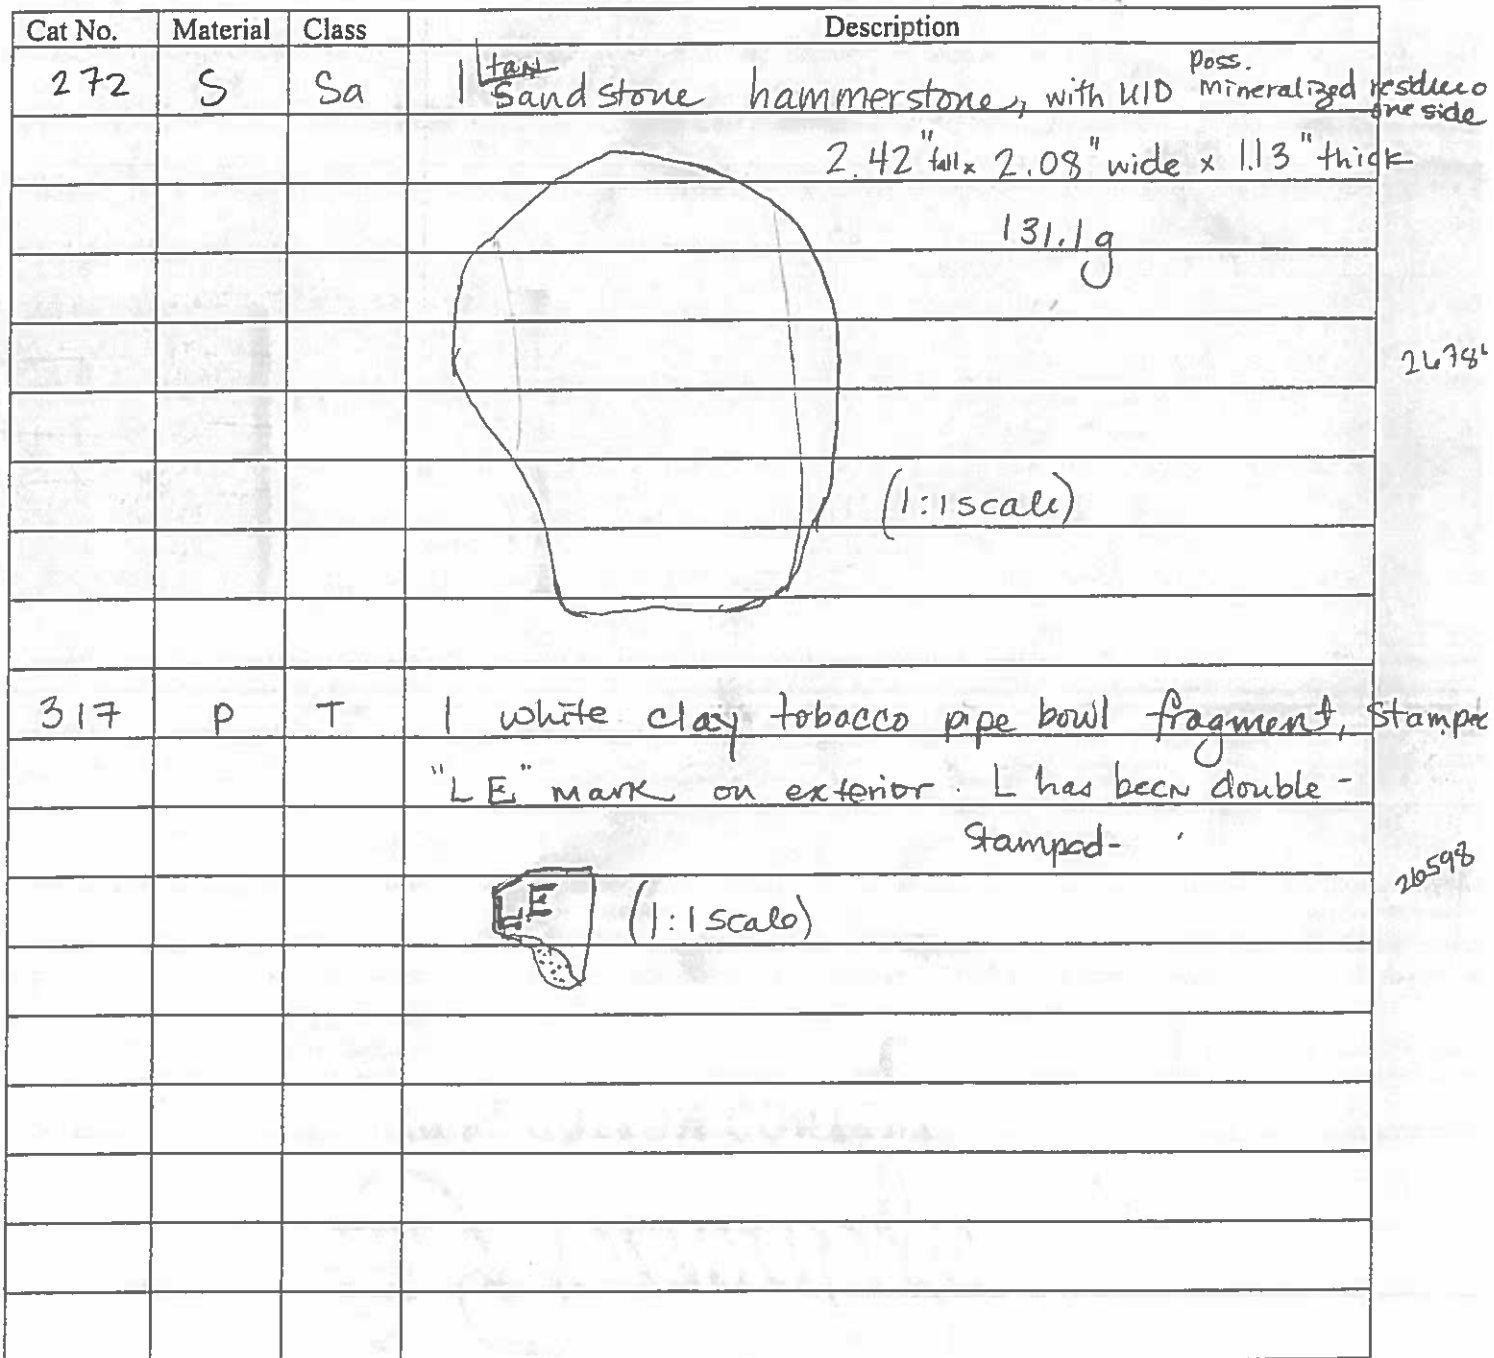 Cat No. Material Class Description
272 S Sa 1 tan Sandstone hammerstone, with UID poss. mineralized residue o
one side
2.42" tall x 2.08" wide x 1.13" thick
131.1g
(1:1 scale)
317 P T 1 white clay tobacco pipe bowl fragment, Stampe
"LE" mark on exterior. L has been double-
Stamped-
LE (1:1 scale)
26598